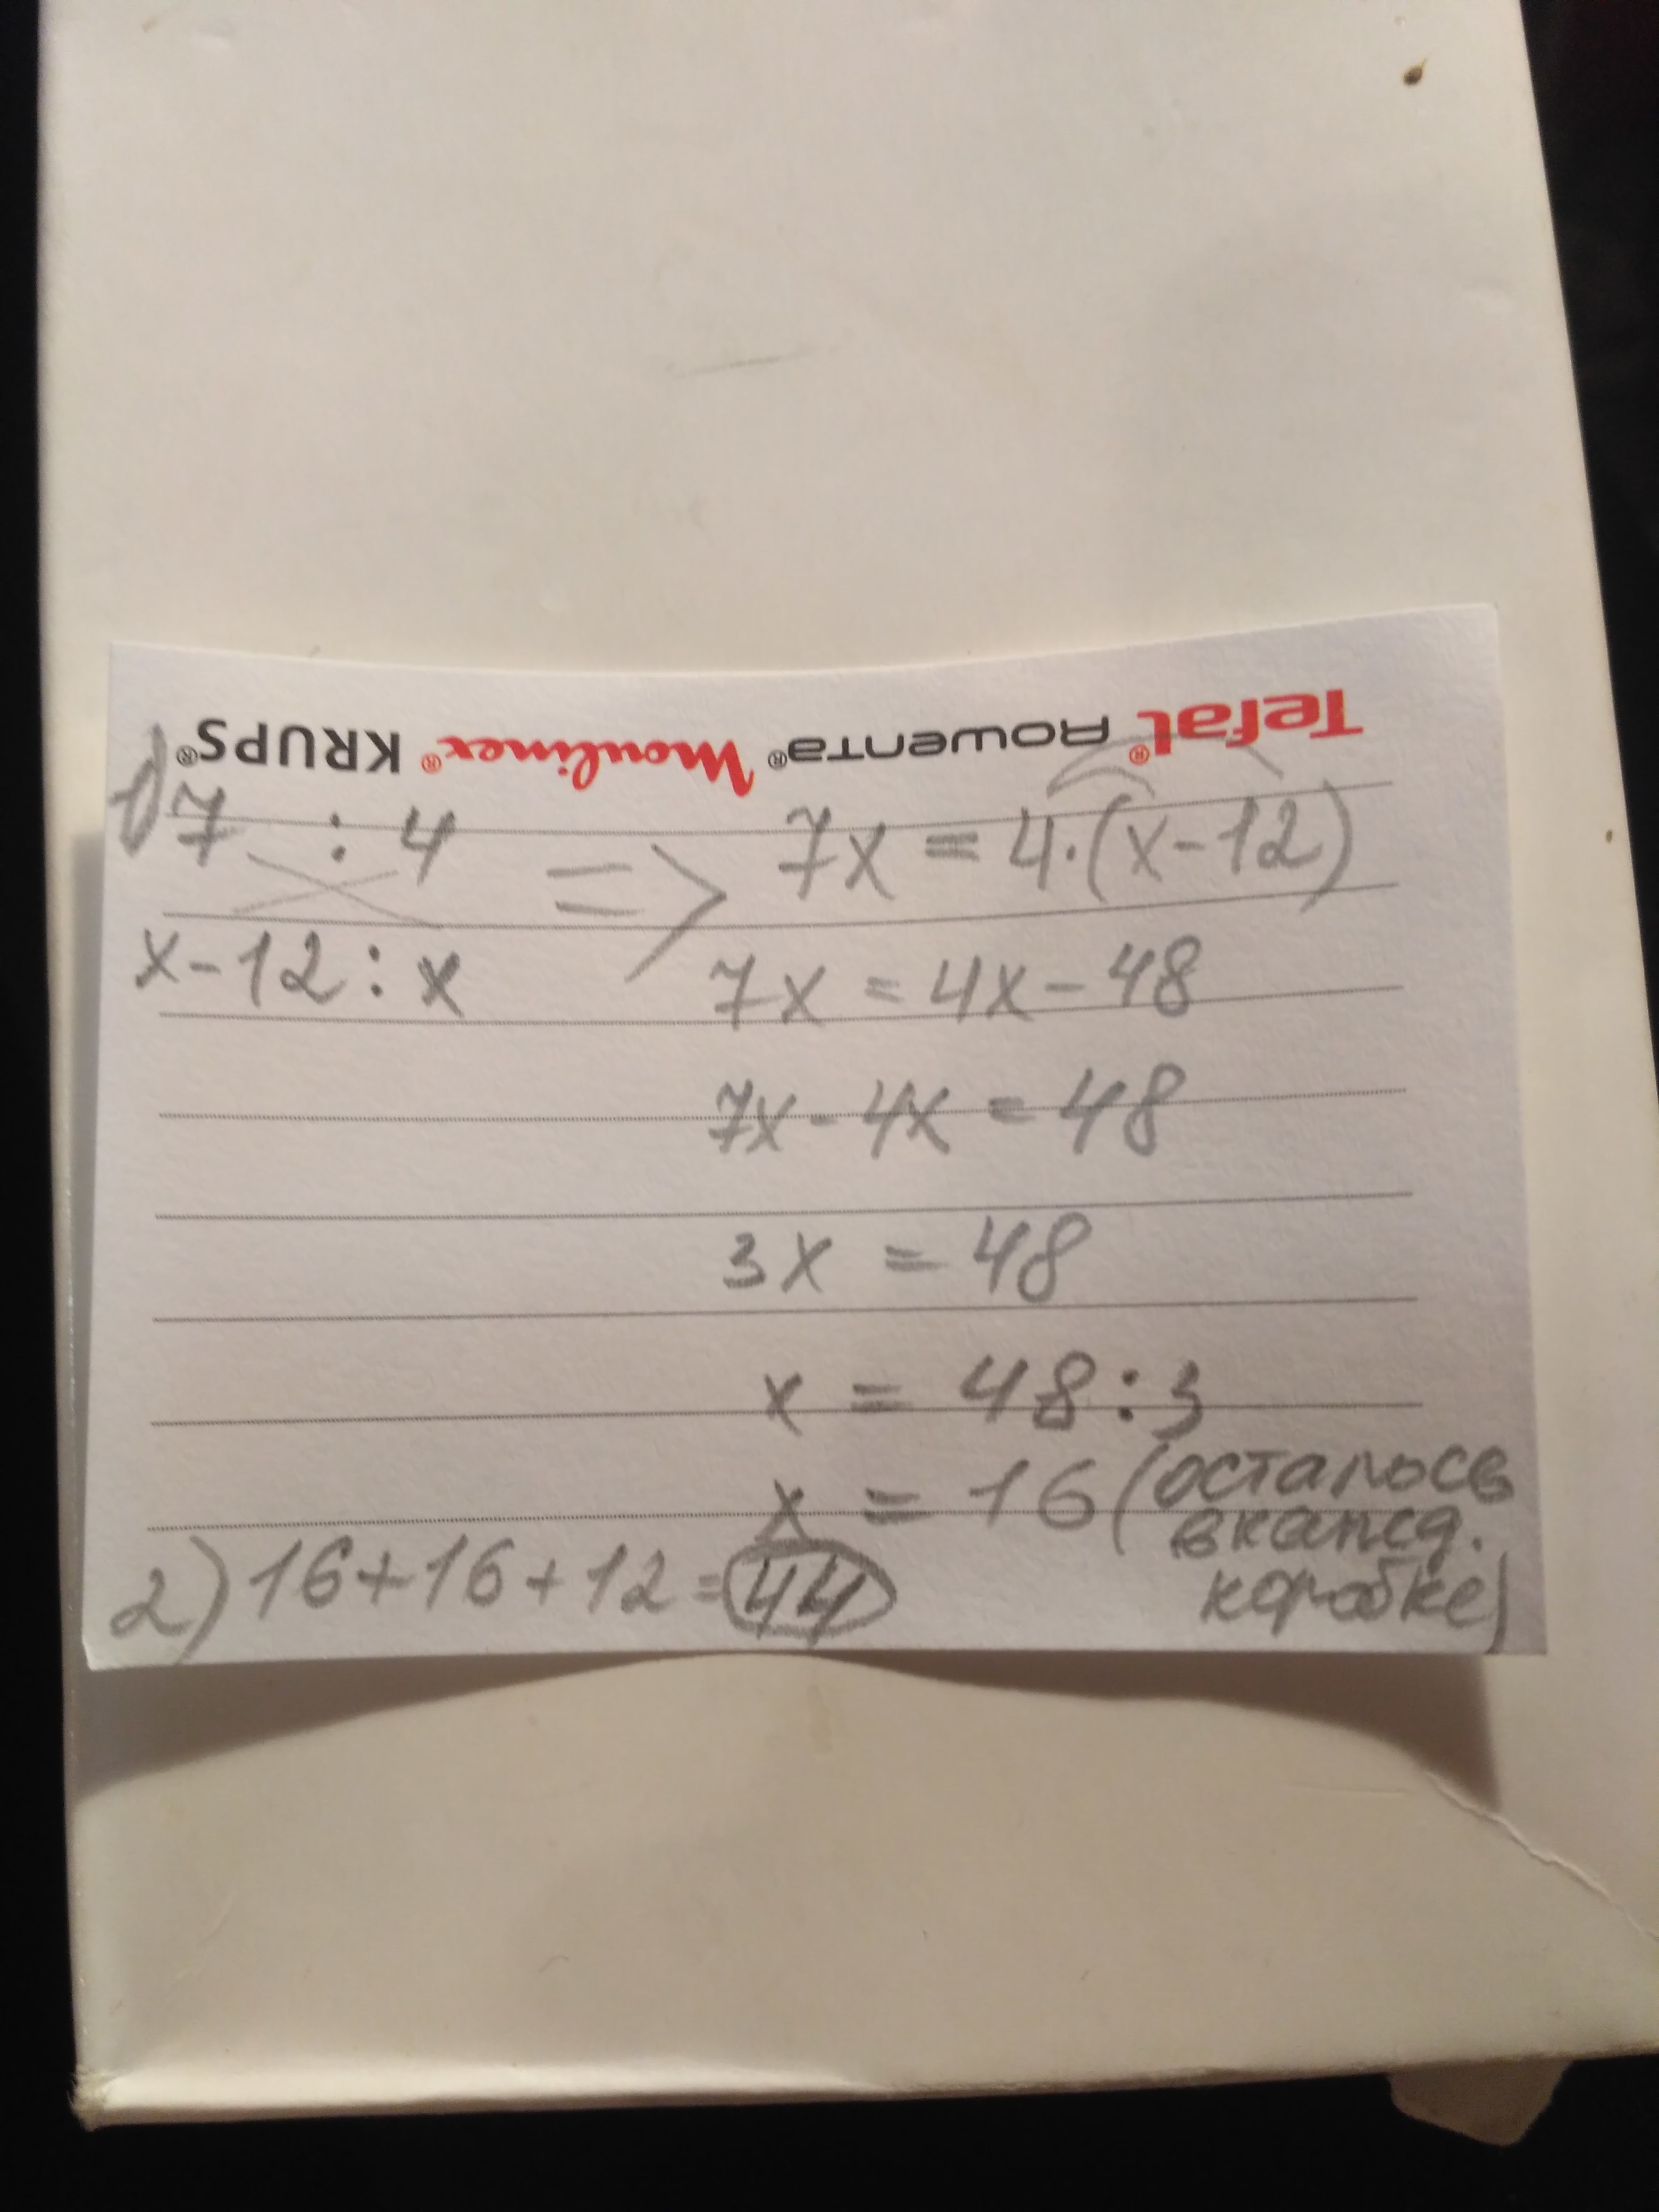 Tefal® Rowenta® Moulinex® KRUPS®
1) 7 : 4 => 7x = 4·(x-12)
x-12 : x
7x = 4x - 48
7x - 4x = 48
3x = 48
x = 48:3
x = 16 (осталось
в кажд.
коробке)
2) 16+16+12=44